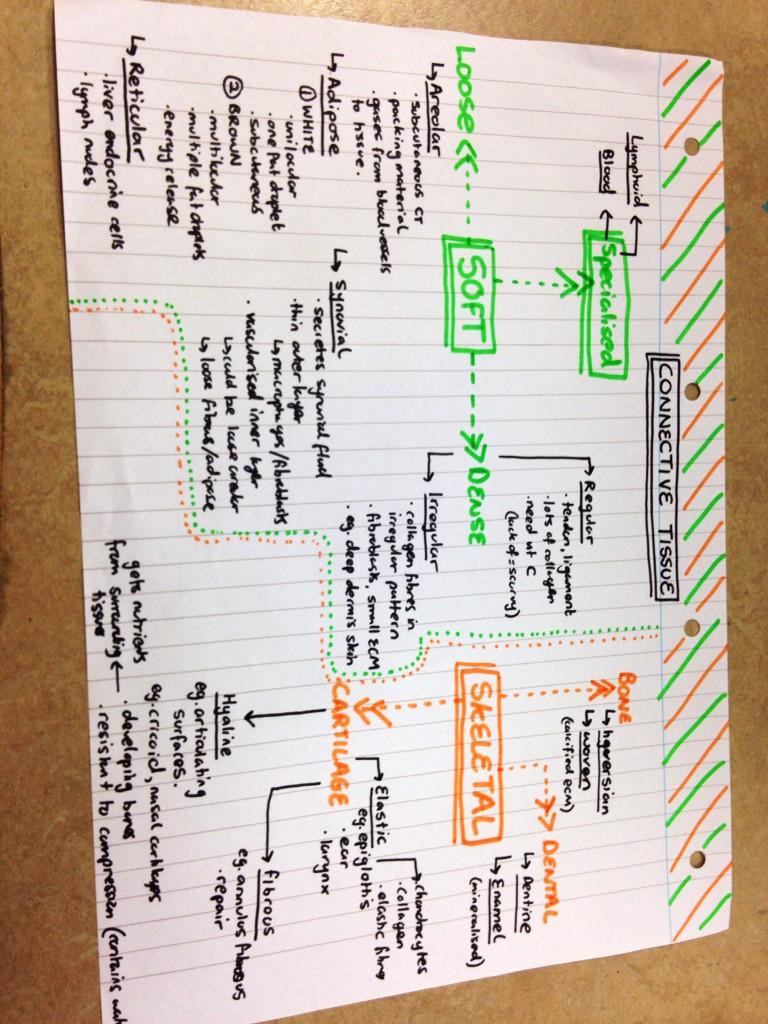 CONNECTIVE TISSUE
Specialised
Lymphoid
Blood
SOFT
LOOSE
↳ Areolar
· subcutaneous CT
· packing material
· gases from blood vessels
to tissue.
↳ Adipose
① WHITE
· unilocular
· one fat droplet
· subcutaneous
② BROWN
· multilocular
· multiple fat droplets
· energy release
↳ Reticular
· liver endocrine cells
· lymph nodes
↳ Synovial
· secretes synovial fluid
· thin outer layer
↳ macrophages/fibroblasts
· vascularised inner layer
↳ could be loose areolar
↳ loose fibous/adipose
DENSE
Regular
· tendon, ligament
· lots of collagen
· need vit C
(lack of = scurvy)
Irregular
· collagen fibres in
irregular pattern
· fibroblasts, small ECM
· eg. deep dermis skin
SKELETAL
BONE
↳ haversian
↳ woven
(calcified ecm)
DENTAL
↳ Dentine
↳ Enamel
(mineralised)
CARTILAGE
Elastic
eg. epiglottis
· ear
· larynx
chondrocytes
· collagen
· elastic fibres
Hyaline
eg. articulating
surfaces.
eg. cricoid, nasal cartilages
· developing bones
· resistant to compression (contains
gets nutrients
from surrounding
tissue
fibrous
eg. annulus fibrosus
· repair